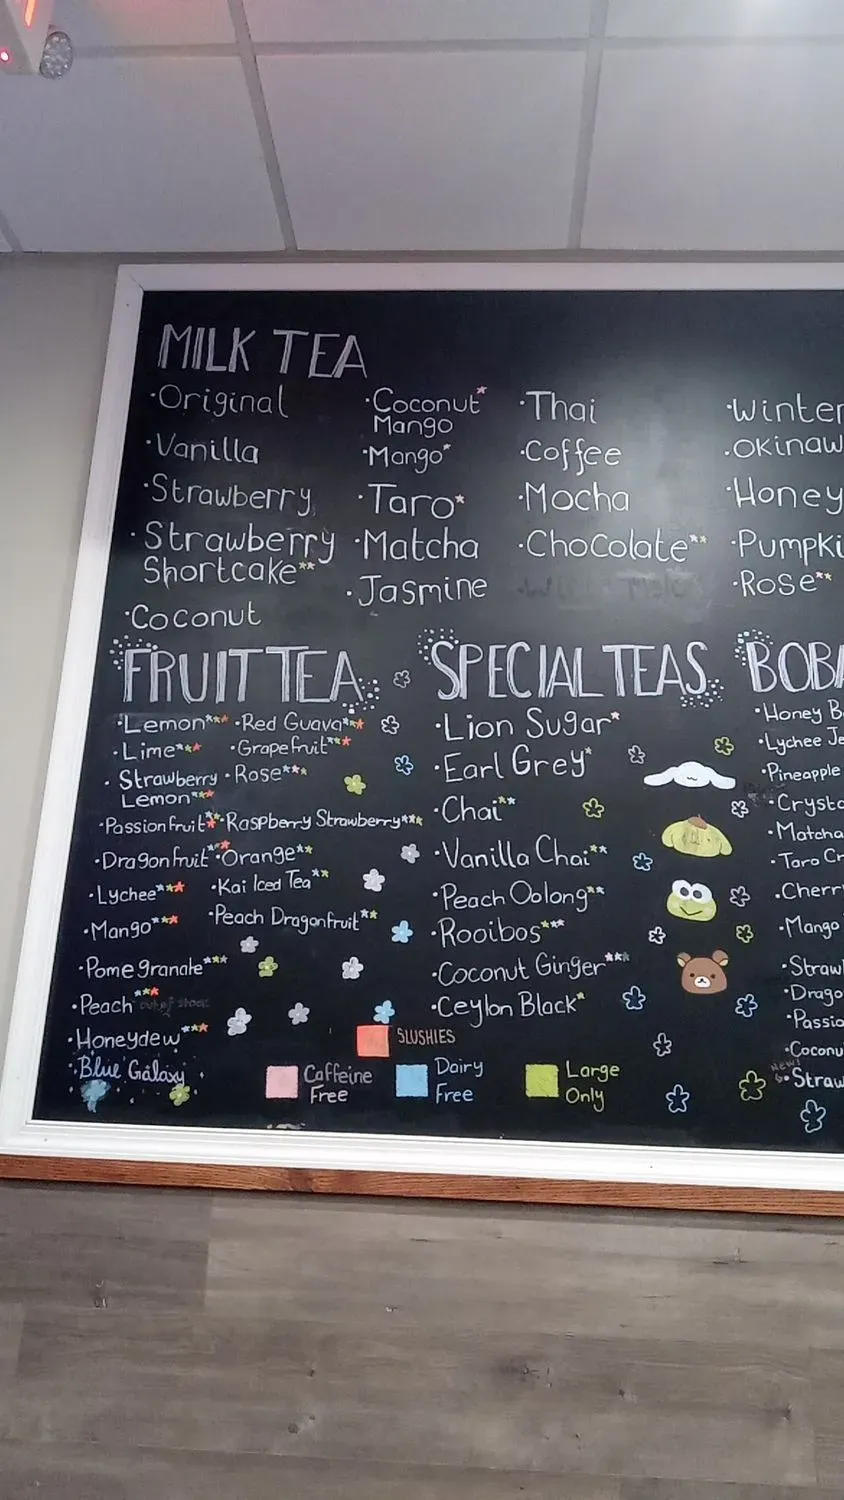 MILK TEA
·Original
·Vanilla
·Strawberry
·Strawberry
Shortcake**
·Coconut
·Coconut*
Mango
·Mango*
·Taro*
·Matcha
·Jasmine
·Thai
·Coffee
·Mocha
·Chocolate**
·Winter
·Okinaw
·Honey
·Pumpki
·Rose**
FRUIT TEA
·Lemon****
·Lime****
·Strawberry
Lemon****
·Passionfruit***
·Dragonfruit***
·Lychee****
·Mango****
·Pomegranate***
·Peach***
·Honeydew****
·Blue Galaxy
·Red Guava****
·Grapefruit****
·Rose***
·Raspberry Strawberry***
·Orange**
·Kai Iced Tea**
·Peach Dragonfruit**
SPECIAL TEAS
·Lion Sugar*
·Earl Grey*
·Chai**
·Vanilla Chai**
·Peach Oolong**
·Rooibos***
·Coconut Ginger***
·Ceylon Black*
BOBA
·Honey B
·Lychee Je
·Pineapple
·Crysta
·Matcha
·Taro Cr
·Cherry
·Mango
·Straw
·Drago
·Passio
·Coconu
NEW!
·Straw
SLUSHIES
Caffeine
Free
Dairy
Free
Large
Only